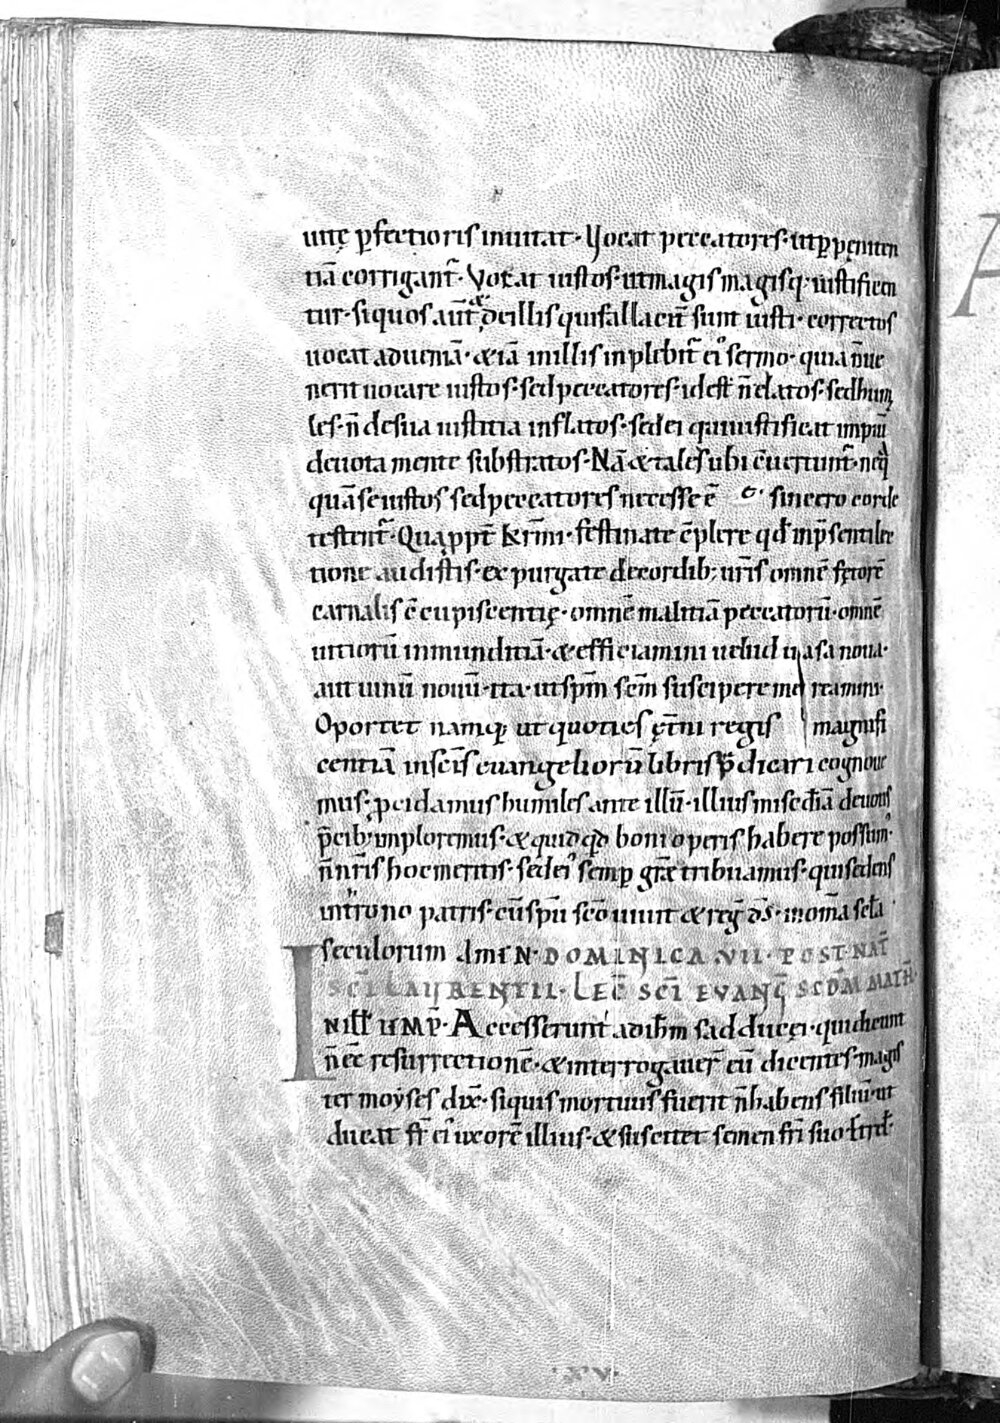 uitę ꝑfectioris inuitat· Vocat peccatores· ut ꝑ pęniten
tiā corrigant᷑· Vocat iustos· ut magis magisq; iustificen
tur· siquos aut̄ de illis qui fallaciť sunt iusti· correctos
uocat ad ueniā· & iā in illis inplebit᷑ ei᷒ sermo· quia n̄ ue
nerit uocare iustos· sed peccatores· id est n̄ elatos· sed humi
les· n̄ de sua iusticia inflatos· sed ei qui iustificat impiū
deuota mente substratos· Nā & tales ubi c̄uertunt᷑· neq̄
quā se iustos sed peccatores necesse ē sincero corde
testent᷑· Quapp̄t k̄rm̄i· festinate c̄plere qd̄ in p̄senti lec
tione audistis· expurgate de cordib; ur̄is omnē fętorē
carnalis c̄cupiscentię· omnē malitiā peccatorū· omnē
uitiorū inmunditiā· & efficiamini uelud uasa noua·
aut uinū nouū· ita· ut sp̄m sc̄m suscipere mereamini·
Oportet namq; ut quoties ęt̄ni regis magnifi
centiā in sc̄is euangeliorū libris p̄dicari cognoue
mus· ꝓcidamus humiles ante illū· illius misc̄diā deuotis
p̄cib; imploremus· & quidqd boni operis habere possum᷒·
n̄ nr̄is hoc meritis· sed ei᷒ semꝑ gr̄e tribuamus· qui sedens
in trono patris· cū sp̄u sc̄o uiuit & reḡ d̄s· in om̄a sc̄la
seculorum AmeN· DOMINICA VII· POST NAT̄
SC̄I LAURENTII· LEC̄ SC̄I EVANḠ SCD̄M MATH̄·
INILL̄ TEMP̄· Accesserunt ad ih̄m sadducęi· qui dicunt
n̄ ēē resurrectionē· & interrogauer̄ eū dicentes· magis
ter moyses dix̄· siquis mortuus fuerit n̄ habens filiū· ut
ducat fr̄ ei᷒ uxorē illius· & suscitet semen fr̄i suo & rel̄·
·XV·